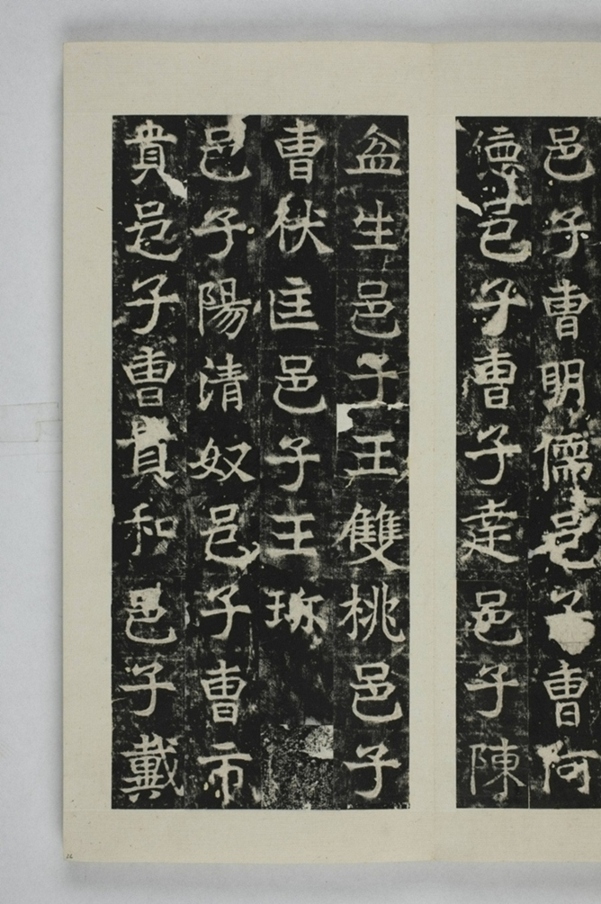 邑子曹明儒邑子曹阿
德邑子曹子逵邑子陳
盆生邑子王雙桃邑子
曹伏匡邑子王珎
邑子陽清奴邑子曹市
貴邑子曹貴和邑子戴